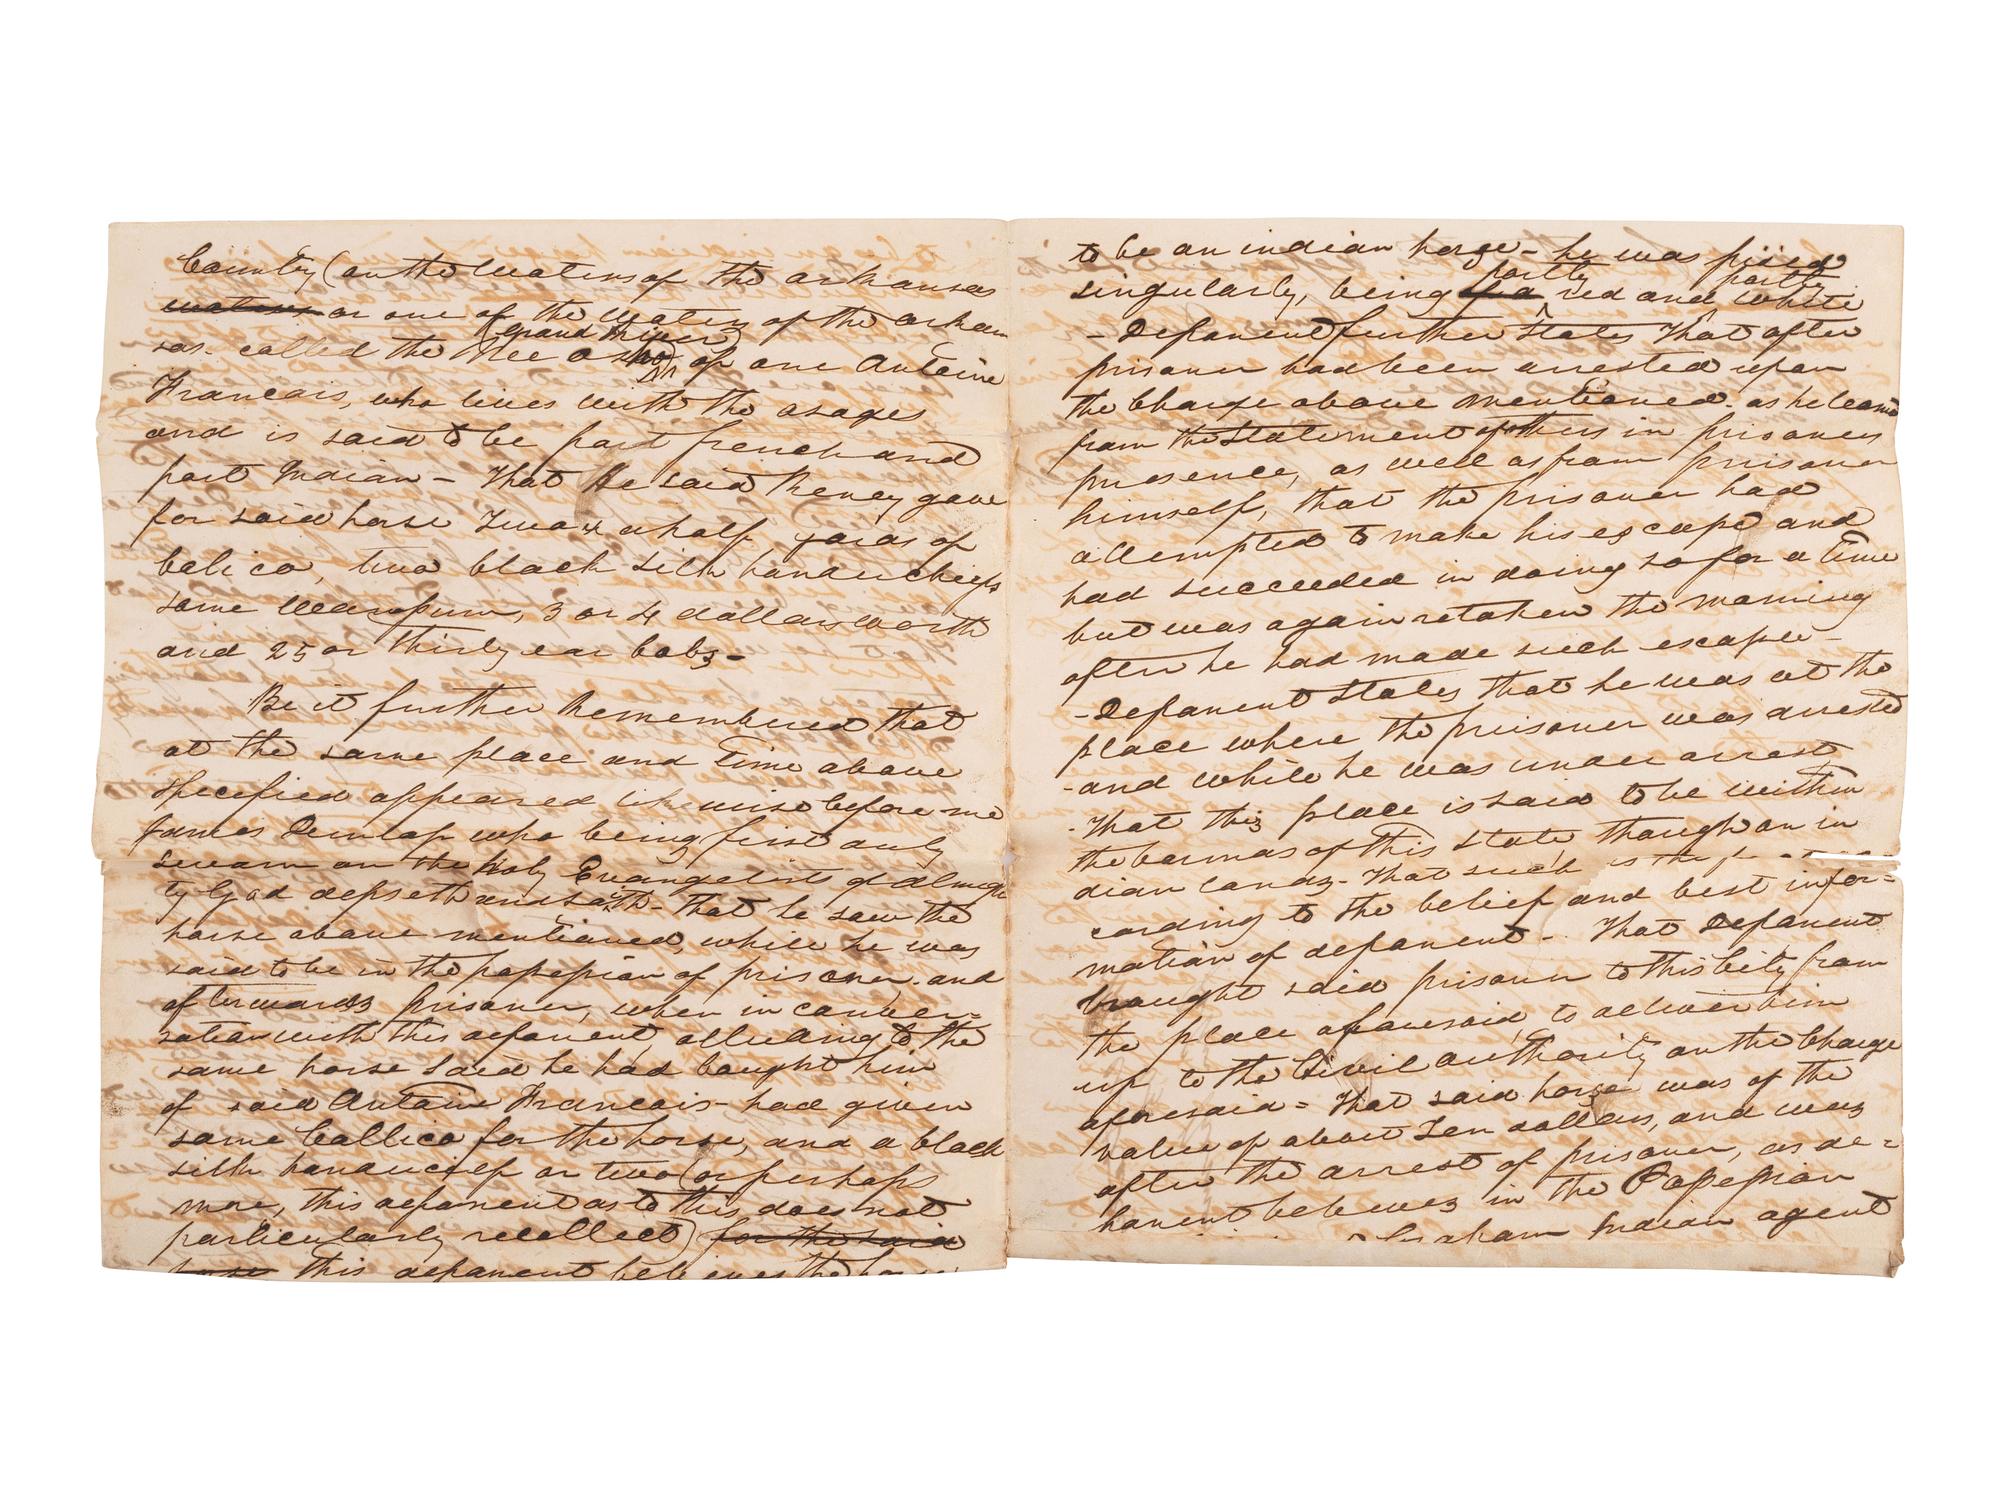 County (on the waters of the arkansas
waters or one of the waters of the arkan
(grand River)
sas called the Nee osho of one Antoine
Francais, who lives with the osages
and is said to be part french and
part Indian - That he said Reney gave
for said horse Two & a half yards of
Calico, two black silk handerchiefs
some wampum, 3 or 4 dollars worth
and 25 or thirty ear bobs -
Be it further Remembered that
at the same place and Time above
specified appeared likewise before me
James Dunlap who being first duly
sworn on the Holy Evangelists of almigh
ty God depseth and saith - that he saw the
horse above mentioned, while he was
said to be in the possession of prisoner. and
afterwards prisoner, when in conver=
sation with this deponent, alluding to the
same horse said he had bought him
of said Antoine Francais - had given
some Callico for the horse, and a black
silk handercief or two (or perhaps
more, this deponent as to this does not
particularly recollect) for the said
horse this deponent believes the horse
to be an indian horse - he was piied
partly partly
singularly, being red and white
- Deponent further States That after
prisoner had been arrested upon
the Charge above mentioned. as he learns
from the Statement of others in prisoners
presence, as well as from prisoner
himself, that the prisoner had
attempted to make his escape and
had succeeded in doing so for a time
but was again retaken the morning
after he had made such escape -
- Deponent States that he was at the
place where the prisoner was arrested
- and while he was under arrest
- That this place is said to be within
the bornds of this State though on in
dian lands - That such is the
cording to the belief and best infor=
mation of deponent - That Deponent
brought said prisoner to this City from
the place aforesaid, to deliver him
up to the Civil authority on the Charge
aforesaid = That said horse was of the
value of about Ten dollars, and was
after the arrest of prisoner, as de=
ponent believes in the Possession
Graham Indian agent